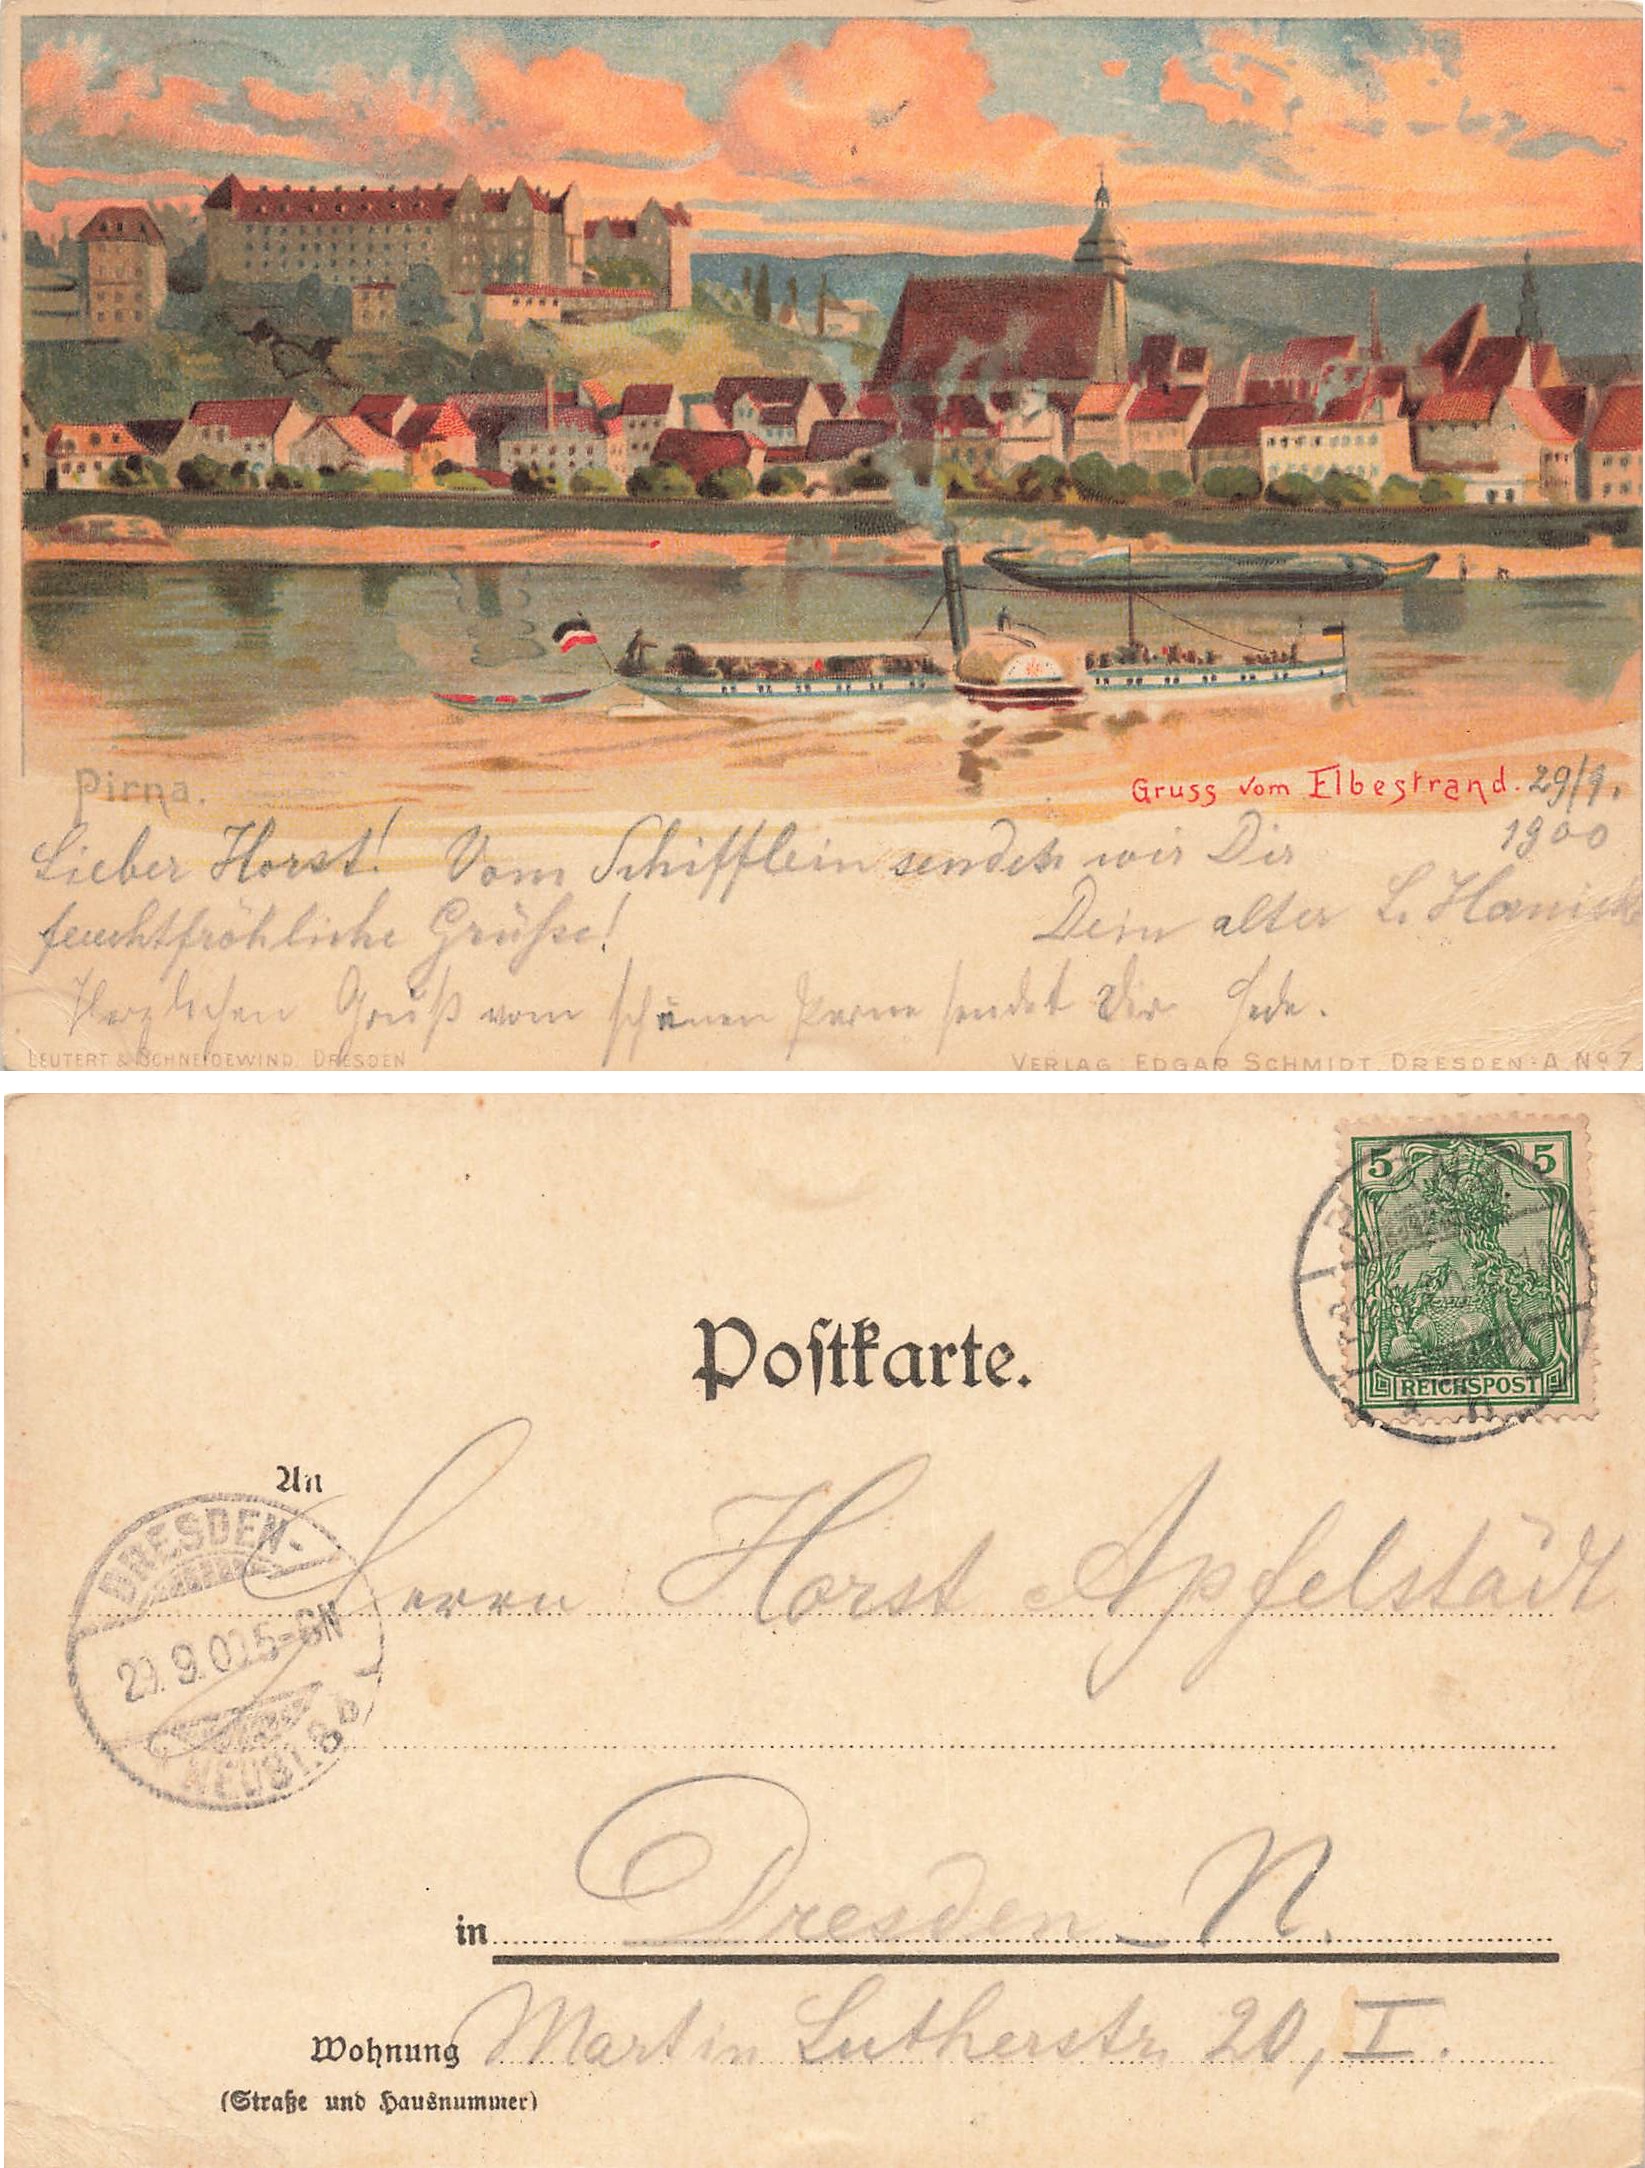 Pirna.
Gruss vom Elbestrand. 29/9.
1900
Lieber Horst! Vom Schifflein senden wir Dir
feuchtfröhliche Grüsse! Dein alter L. Hanisch
Herzlichen Gruß vom schönen Perne sendet Dir
LEUTERT & SCHNEIDEWIND. DRESDEN
VERLAG: EDGAR SCHMIDT, DRESDEN-A. No 7
5 5
REICHSPOST
Postkarte.
An
Herrn Horst Apfelstädt
DRESDEN-
29.9.00.5-6N
NEUST. 8 b
in Dresden N.
Wohnung Martin Lutherstr. 20, I.
(Straße und Hausnummer)